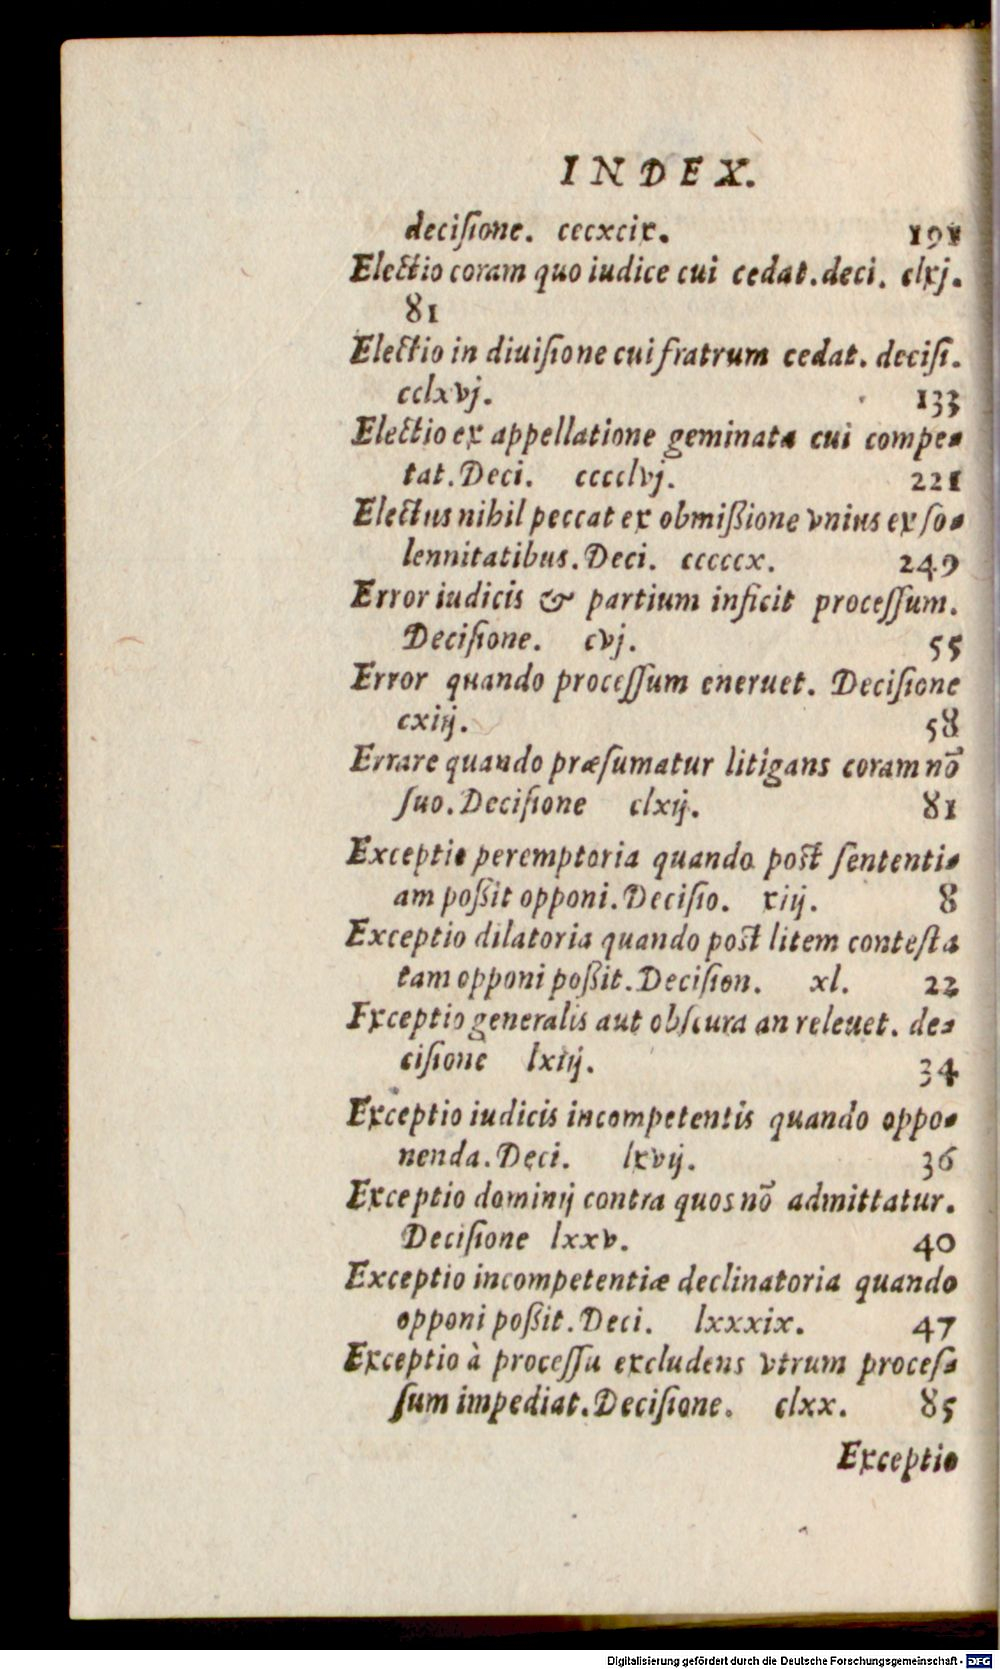 INDEX.
deciſione. cecxcix. 191
Electio coram quo iudice cui cedat. deci. clxj.
81
Electio in diuiſione cui fratrum cedat. deciſi.
cclxvj. 133
Electio ex appellatione geminata cui compe⸗
tat. Deci. cccclvj. 221
Electus nihil peccat ex obmißione vnius ex ſo⸗
lennitatibus. Deci. cccccx. 249
Error iudicis & partium inficit proceſſum.
Deciſione. cvj. 55
Error quando proceſſum eneruet. Deciſione
cxiij. 58
Errare quando præſumatur litigans coram nō
ſuo. Deciſione clxij. 81
Exceptio peremptoria quando post ſententi⸗
am poßit opponi. Deciſio. xiij. 8
Exceptio dilatoria quando post litem conteſta
tam opponi poßit. Deciſion. xl. 22
Exceptio generalis aut obſcura an releuet. de⸗
ciſione lxiij. 34
Exceptio iudicis incompetentis quando oppo⸗
nenda. Deci. lxvij. 36
Exceptio dominij contra quos nō admittatur.
Deciſione lxxv. 40
Exceptio incompetentiæ declinatoria quando
opponi poßit. Deci. lxxxix. 47
Exceptio à proceſſu excludens vtrum proceſ⸗
ſum impediat. Deciſione. clxx. 85
Exceptio
Digitalisierung gefördert durch die Deutsche Forschungsgemeinschaft - DFG